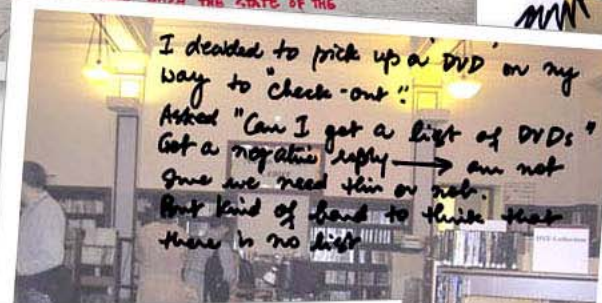 THE STATE OF THE
I decided to pick up a "DVD" on my
way to "check-out".
Asked "Can I get a list of DVDs"
Got a negative reply → am not
sure we need this or not.
But kind of hard to think that
there is no list
DVD Collection